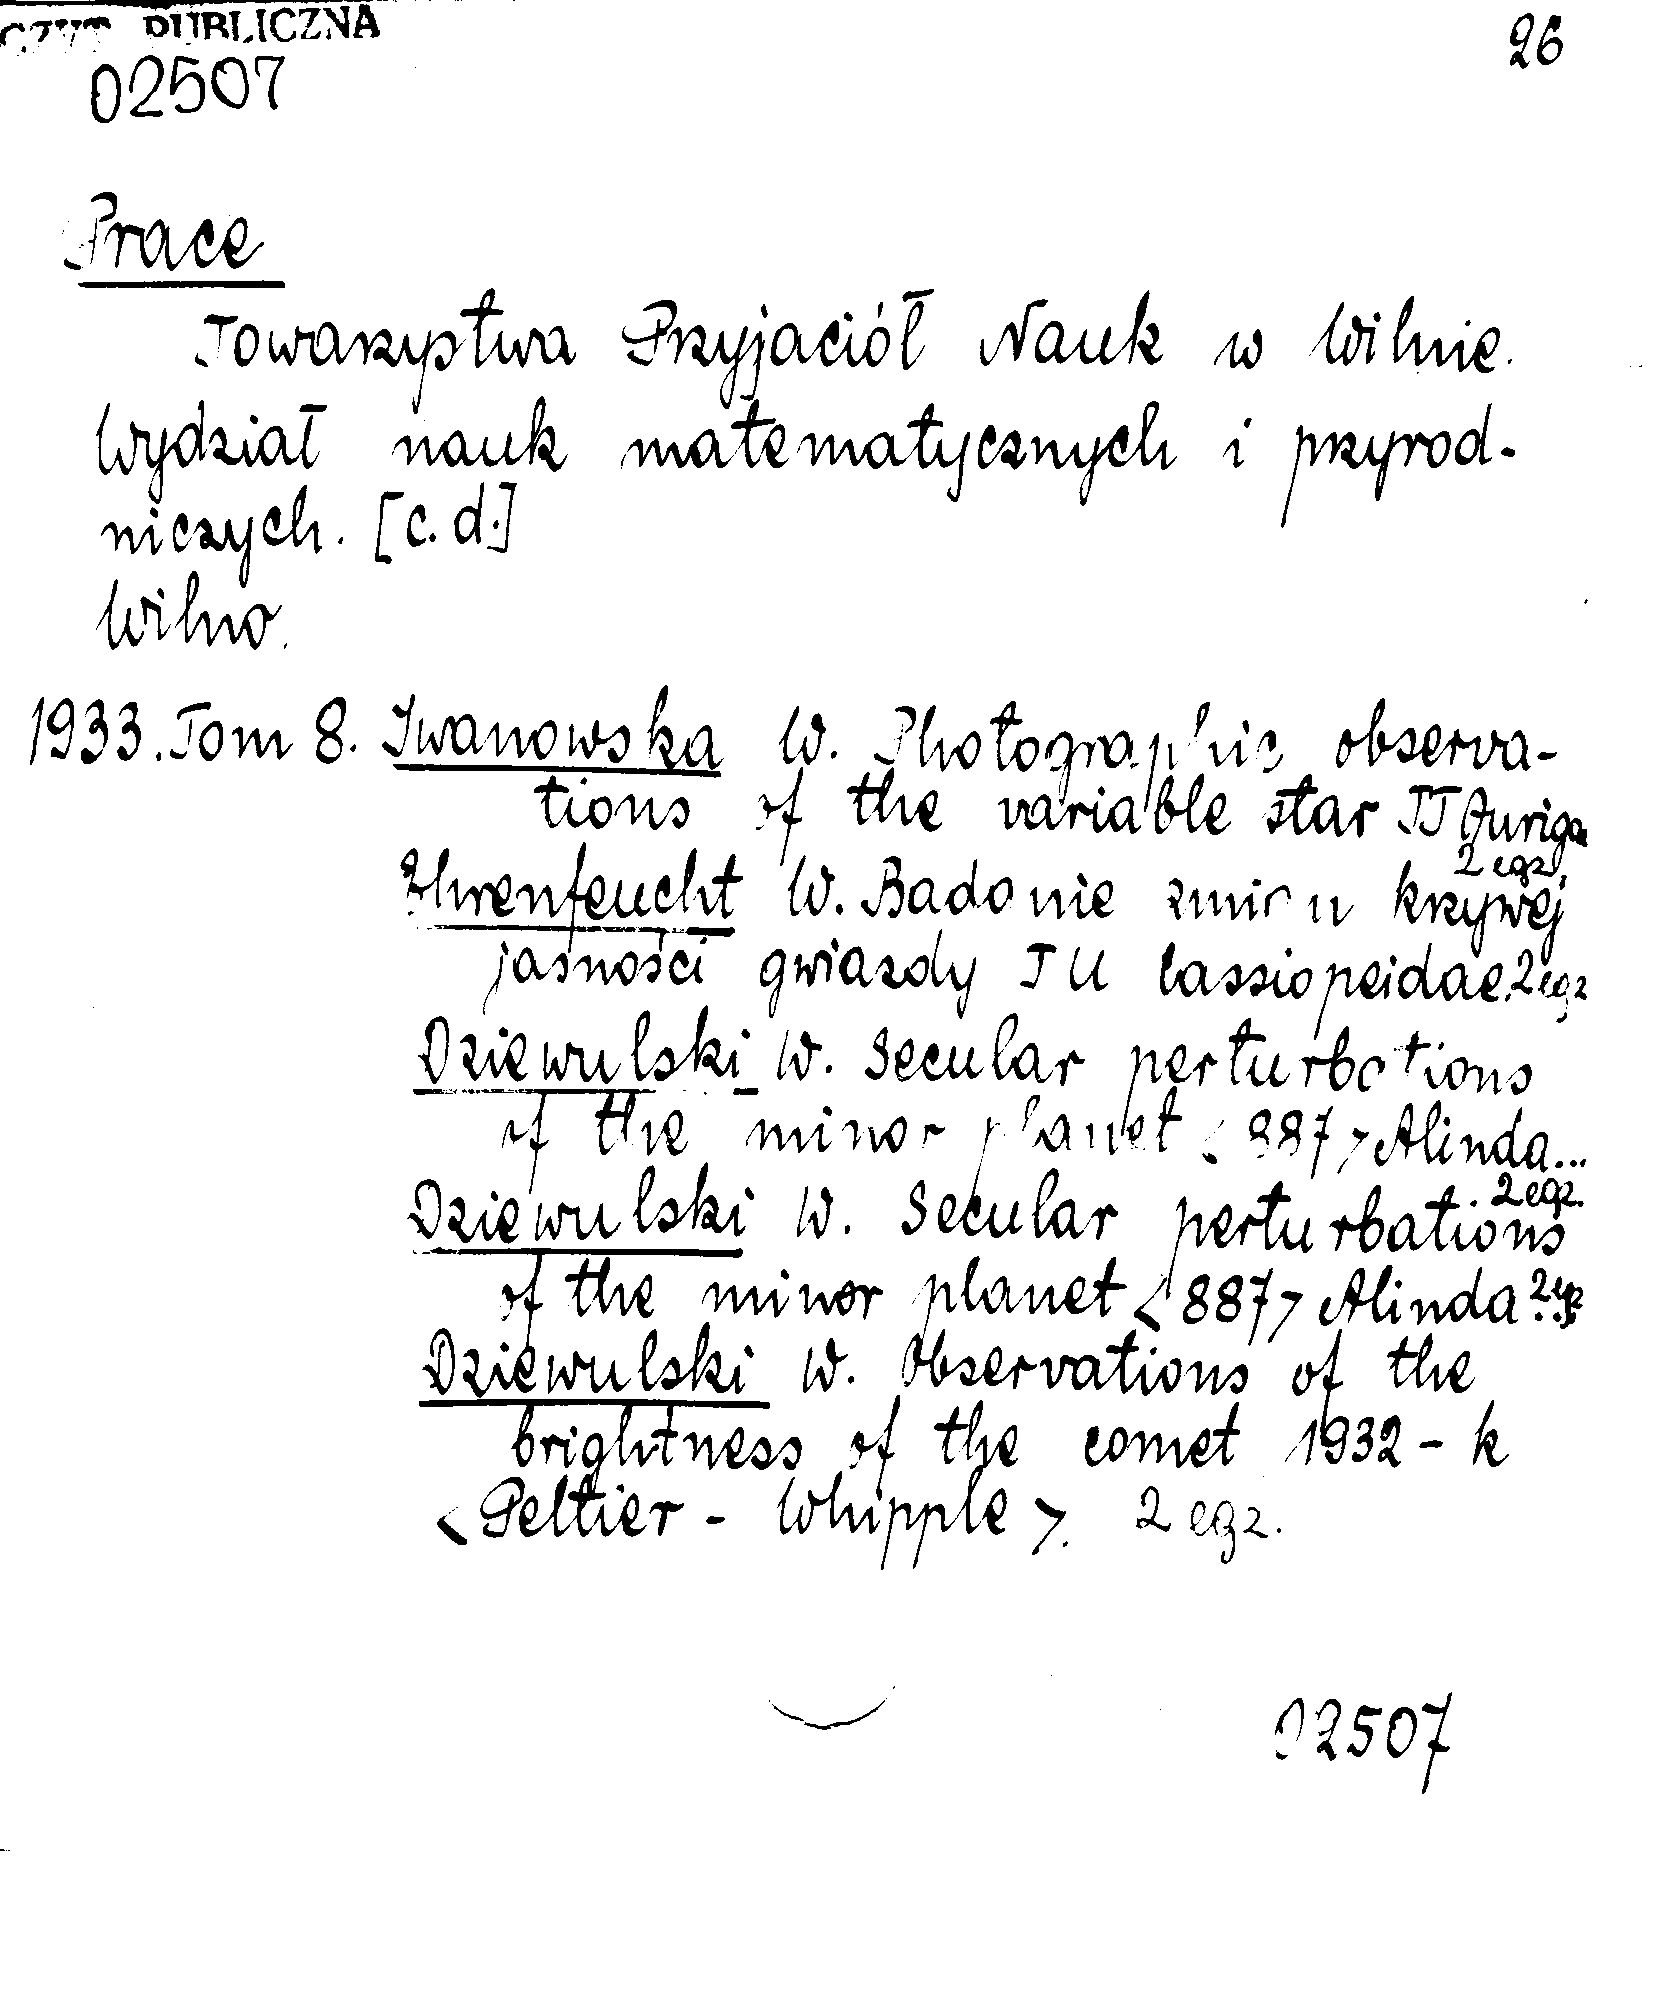 CZYT. PUBLICZNA
26
02507
Prace
Towarzystwa Przyjaciół Nauk w Wilnie.
Wydział nauk matematycznych i przyrod-
niczych. [c.d.]
Wilno.
1933. Tom 8. Iwanowska W. Photographic observa-
tions of the variable star TT Aurigae
2 egz.
Ehrenfeucht W. Badanie zmian krzywej
jasności gwiazdy TU Cassiopeidae. 2 egz
Dziewulski W. Secular perturbations
of the minor planet <887> Alinda...
2 egz.
Dziewulski W. Secular perturbations
of the minor planet <887> Alinda... 2 egz
Dziewulski W. Observations of the
brightness of the comet 1932 - k
<Peltier - Whipple>. 2 egz.
02507